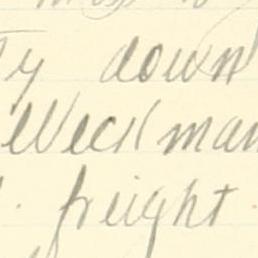 ty down
Weckman
freight